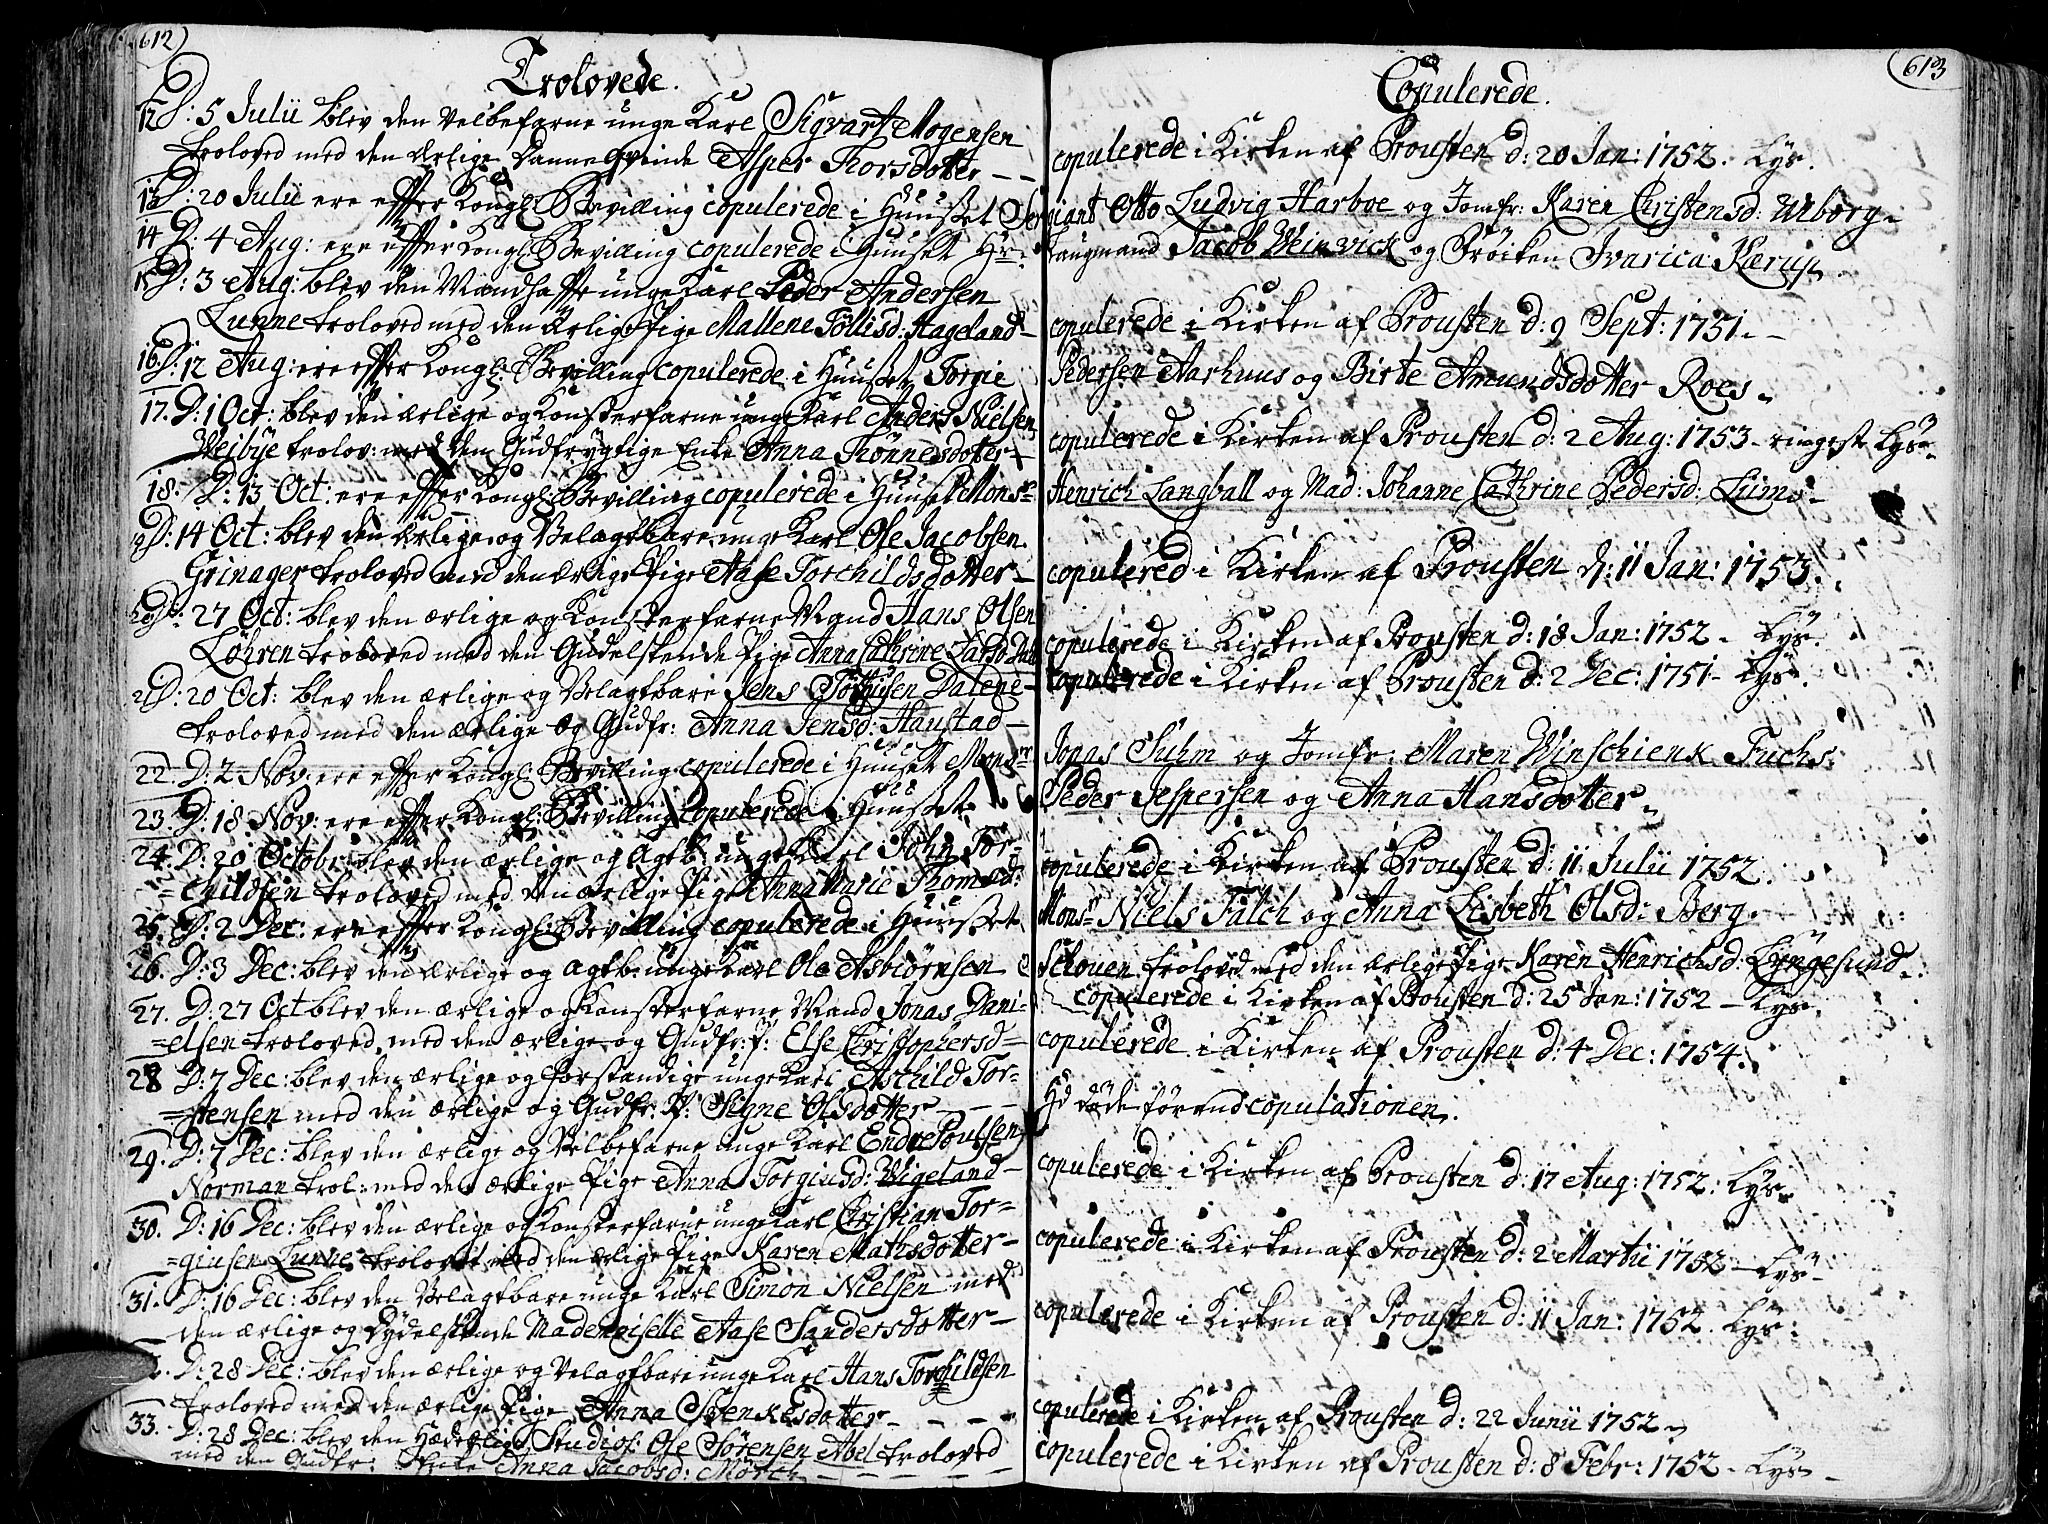 612
Trolovede.
12 D: 5 Julii blev den Velbefarne unge Karl Sigvart Mogensen
troloved med den Ærlige Danneqvinde Asper Thorsdotter
13 D: 20 Julii ere efter Kongl: Bevilling copulerede i Huuset Ser
14 D: 4 Aug: ere efter Kongl: Bevilling copulerede i Huuset Hr.
15 D: 3 Aug: blev den Mandhaffte unge Karl Peder Andersen
Lunne troloved med den Ærlige Pige Mallene Tollisd: Hageland
16. D: 12 Aug: ere efter Kongl: Bevilling copulerede i Huuset Torgie
17. D: 1 Oct: blev den ærlige og Konsterfarne unge Karl Anders Nielsen
Weibye trolov: med den Gudfrygtige Enke Anna Thönnesdotter
18. D: 13 Oct: ere efter Kongl: Bevilling copulerede i Huuset Mons:
19 D: 14 Oct: blev den Ærlige og Velagtbare unge Karl Ole Jacobsen
Grinager troloved med den ærlige Pige Aase Torchildsdotter
20 D: 27 Oct: blev den ærlige og Konsterfarne Mand Hans Olsen
Löhren troloved med den Gudelskende Pige Anna Cathrine
21 D: 20 Oct: blev den ærlige og Velagtbare Jens Dalene
troloved med den ærlige og Gudfr: Anna Jensd: Haustad
22. D: 2 Nov: ere efter Kongl: Bevilling copulerede i Huuset Monsr
23. D: 18 Nov: ere efter Kongl: Bevilling copulerede i Huuset
24. D: 20 Octobr: blev den ærlige og Agtb: unge Karl John Tor-
=childsen troloved med den ærlige Pige Anna Marie Thomasd:
25. D: 2 Dec: ere efter Kongl: Bevilling copulerede i Huuset
26. D: 3 Dec: blev den Ærlige og Agtb: unge Karl Ole Asbiörnsen
27. D: 27 Oct blev den ærlige og Konsterfarne Mand Jonas Dani-
=elsen troloved med den ærlige og Gudfr: P: Else Christophersd=
28 D: 7 Dec: blev den ærlige og forstandige unge Karl Aschild Tor-
=stensen med den ærlige og Gudfr: P: Signe Olsdotter
29. D: 7 Dec: blev den ærlige og Velbefarne unge Karl Endre Poulsen
Norman trol: med den ærlige Pige Anna Torgiusd: Wigeland
30. D: 16 Dec: blev den ærlige og Konsterfarne unge Karl Christian Tor=
=giusen Lunne troloved med den ærlige Pige Karen Mathisdotter
31. D: 16 Dec: blev den Velagtbare unge Karl Simon Nielsen med
den ærlige og Dydelskende Mademoiselle Aase Sandersdotter
D: 28 Dec: blev den ærlige og Velagtbare unge Karl Hans Torchildsen
troloved med den ærlige Pige Anna Svenkesdotter
33. D: 28 Dec: blev den Hæderlige Studios: Ole Sörensen Abel troloved
med den Gudfr: Enke Anna Jacobsd: Mörch
613
Copulerede.
copulerede i Kirken af Prousten d: 20 Jan: 1752. Lys.
giant Otto Ludvig Harboe og Jomfr: Karen Christensd: Wiborg
Laugmand Jacob Weinvick og Fröiken Ivarica Kærup
copulerede i Kirken af Prousten d: 9 Sept: 1751.
Pedersen Aarhuus og Birte Amundsdotter Roes
copulerede i Kirken af Prousten d: 2 Aug: 1753 - ringest Lys
Henrich Langball og Mad: Johanne Cathrine Pedersd: Lim
copulered i Kirken af Prousten d: 11 Jan: 1753.
copulerede i Kirken af Prousten d: 18 Jan: 1752 - Lys.
copulerede i Kirken af Prousten d: 2 Dec: 1751 - Lys.
Jonas Suhm og Jomfr: Maren Winschienk Fuchs
Peder Jespersen og Anna Hansdotter
copulerede i Kirken af Prousten d: 11 Julii 1752.
Monsr Niels Falch og Anna Lisbeth Olsd: Berg
Skouen troloved med den ærlige Pige Karen Henrichsd: Lyngesund
copulerede i Kirken af Prousten d: 25 Jan: 1752 - Lys.
copulerede i Kirken af Prousten d: 4 Dec: 1754.
döde förend copulationen.
copulerede i Kirken af Prousten d: 17 Aug: 1752: Lys
copulerede i Kirken af Prousten d: 2 Martii 1752 - Lys
copulerede i Kirken af Prousten d: 11 Jan: 1752. Lys
copulerede i Kirken af Prousten d: 22 Junii 1752
copulerede i Kirken af Prousten d: 8 Febr: 1752 - Lys